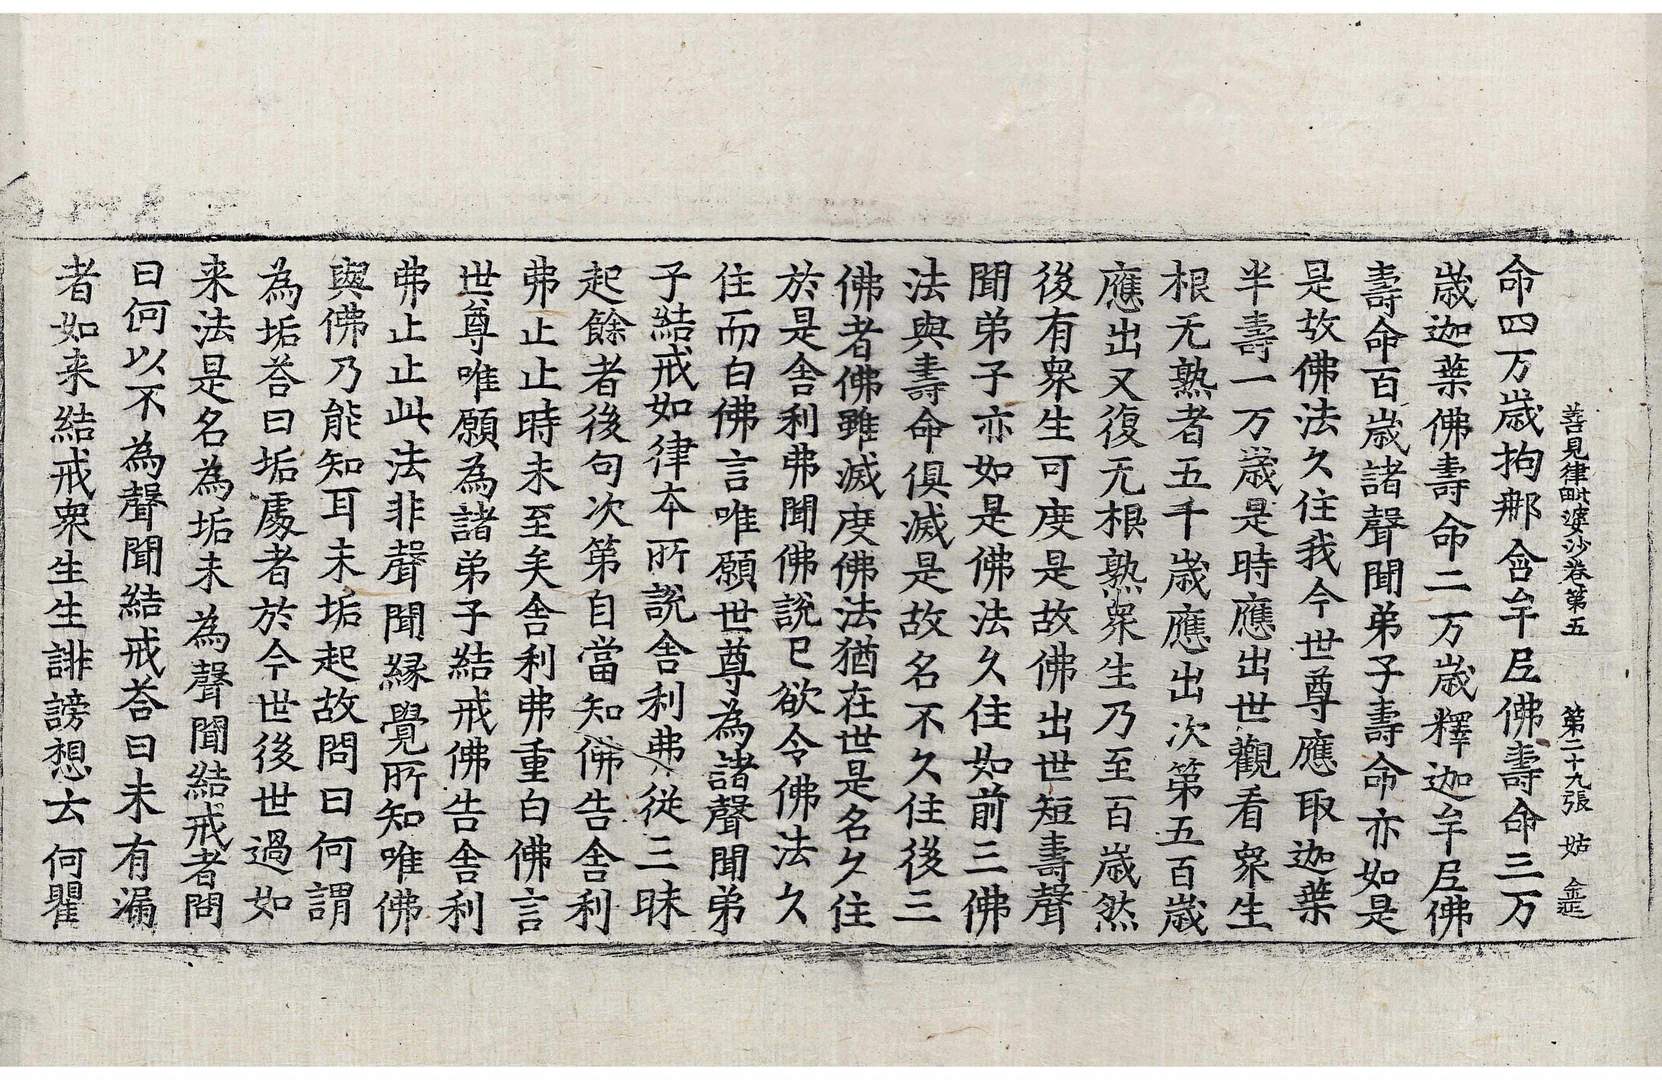 善見律毗婆沙卷第五　第二十九張　姑
命四万歳拘那含牟尼佛壽命三万
歳迦葉佛壽命二万歳釋迦牟尼佛
壽命百歳諸聲聞弟子壽命亦如是
是故佛法久住我今世尊應取迦葉
半壽一万歳是時應出世觀看衆生
根无熟者五千歳應出次第五百歳
應出又復无根熟衆生乃至百歳然
後有衆生可度是故佛出世短壽聲
聞弟子亦如是佛法久住如前三佛
法與壽命俱滅是故名不久住後三
佛者佛雖滅度佛法猶在世是名久住
於是舎利弗聞佛說已欲令佛法久
住而白佛言唯願世尊為諸聲聞弟
子結戒如律本所說舎利弗從三昧
起餘者後句次第自當知佛告舎利
弗止止時未至矣舎利弗重白佛言
世尊唯願為諸弟子結戒佛告舎利
弗止止此法非聲聞縁覺所知唯佛
與佛乃能知耳未垢起故問曰何謂
為垢荅曰垢䖏者於今世後世過如
来法是名為垢未為聲聞結戒者問
曰何以不為聲聞結戒荅曰未有漏
者如来結戒衆生生誹謗想云何瞿